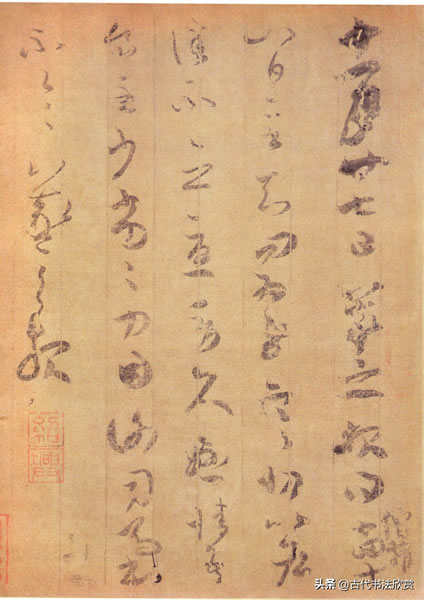 十一月廿七日羲之報得十四
十八日二書知問為慰寒切比各
佳不念憂勞久懸情吾
食至少劣劣力因謝司馬書
不一一羲之報
紹興
头条 @古代书法欣赏